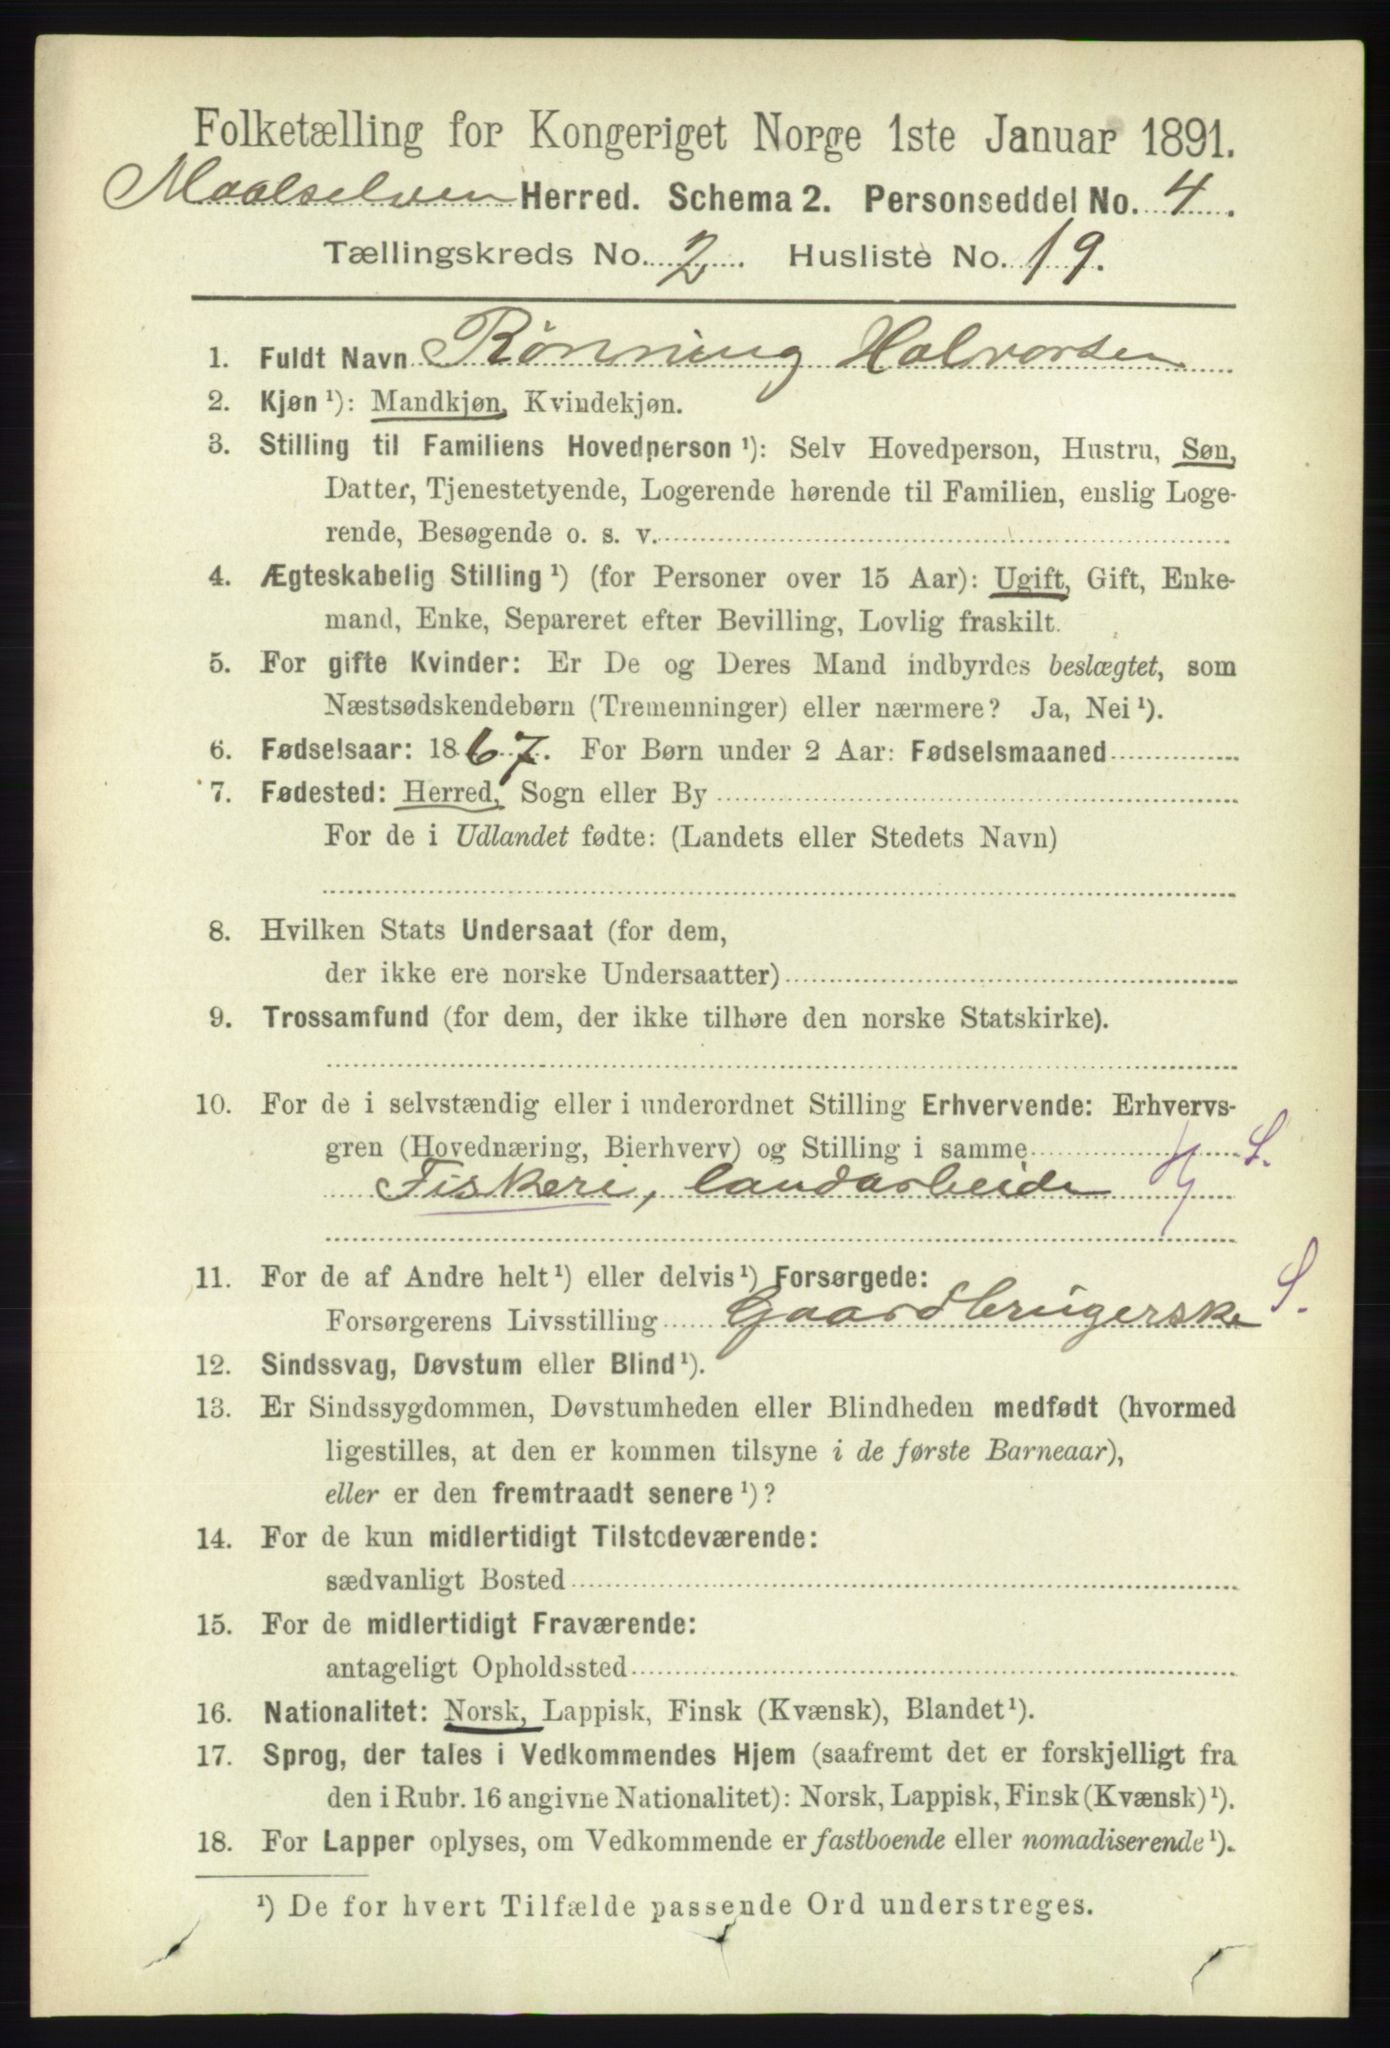 Folketælling for Kongeriget Norge 1ste Januar 1891.
Maalselven Herred. Schema 2. Personseddel No. 4.
Tællingskreds No. 2. Husliste No. 19.
1. Fuldt Navn Rønning Halvorsen
2. Kjøn ¹): Mandkjøn, Kvindekjøn.
3. Stilling til Familiens Hovedperson ¹): Selv Hovedperson, Hustru, Søn,
Datter, Tjenestetyende, Logerende hørende til Familien, enslig Loge-
rende, Besøgende o. s. v.
4. Ægteskabelig Stilling ¹) (for Personer over 15 Aar): Ugift, Gift, Enke-
mand, Enke, Separeret efter Bevilling, Lovlig fraskilt.
5. For gifte Kvinder: Er De og Deres Mand indbyrdes beslægtet, som
Næstsødskendebørn (Tremenninger) eller nærmere? Ja, Nei ¹).
6. Fødselsaar: 1867. For Børn under 2 Aar: Fødselsmaaned
7. Fødested: Herred, Sogn eller By
For de i Udlandet fødte: (Landets eller Stedets Navn)
8. Hvilken Stats Undersaat (for dem,
der ikke ere norske Undersaatter)
9. Trossamfund (for dem, der ikke tilhøre den norske Statskirke).
10. For de i selvstændig eller i underordnet Stilling Erhvervende: Erhvervs-
gren (Hovednæring, Bierhverv) og Stilling i samme S.
Fiskeri, landarbeide
11. For de af Andre helt ¹) eller delvis ¹) Forsørgede:
Forsørgerens Livsstilling Gaardbrugerske S.
12. Sindssvag, Døvstum eller Blind ¹).
13. Er Sindssygdommen, Døvstumheden eller Blindheden medfødt (hvormed
ligestilles, at den er kommen tilsyne i de første Barneaar),
eller er den fremtraadt senere ¹)?
14. For de kun midlertidigt Tilstedeværende:
sædvanligt Bosted
15. For de midlertidigt Fraværende:
antageligt Opholdssted
16. Nationalitet: Norsk, Lappisk, Finsk (Kvænsk), Blandet ¹).
17. Sprog, der tales i Vedkommendes Hjem (saafremt det er forskjelligt fra
den i Rubr. 16 angivne Nationalitet): Norsk, Lappisk, Finsk (Kvænsk) ¹).
18. For Lapper oplyses, om Vedkommende er fastboende eller nomadiserende ¹).
¹) De for hvert Tilfælde passende Ord understreges.